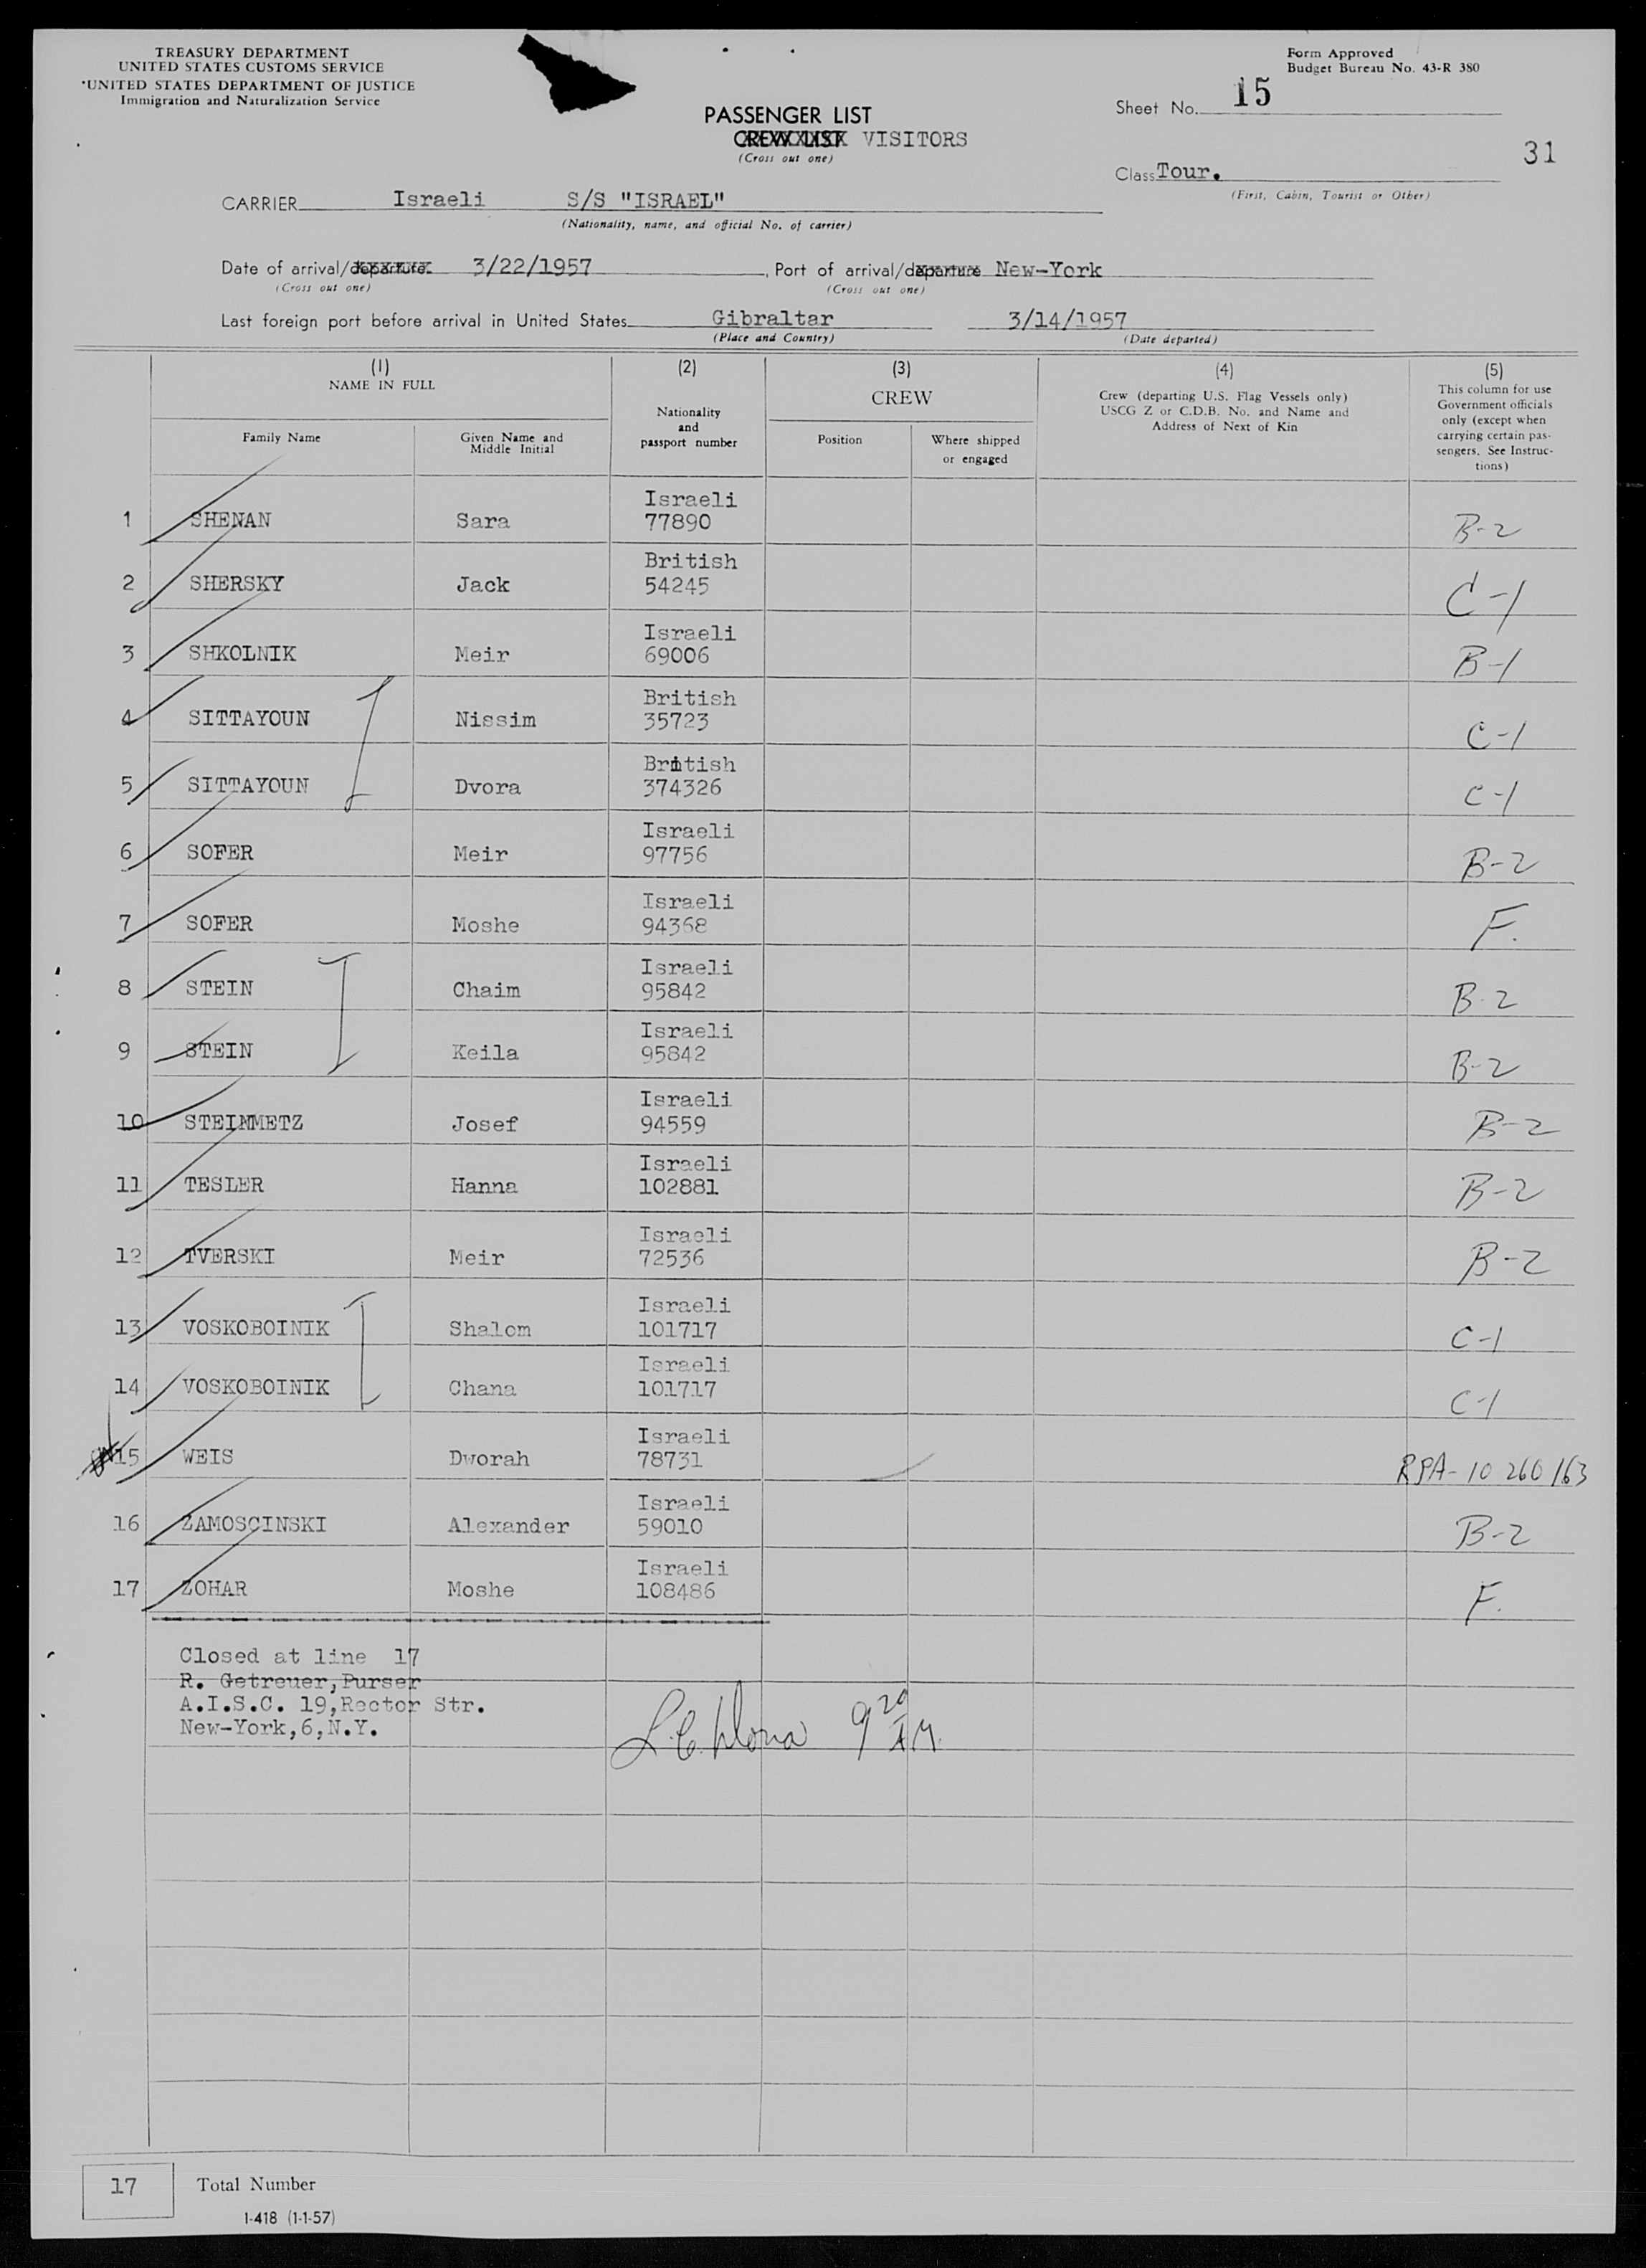 TREASURY DEPARTMENT
UNITED STATES CUSTOMS SERVICE
UNITED STATES DEPARTMENT OF JUSTICE
Immigration and Naturalization Service
Form Approved
Budget Bureau No. 43-R 380
Sheet No. 15
PASSENGER LIST
CREW LIST VISITORS
(Cross out one)
31
Class Tour.
(First, Cabin, Tourist or Other)
CARRIER Israeli S/S "ISRAEL"
(Nationality, name, and official No. of carrier)
Date of arrival/departure 3/22/1957, Port of arrival/departure New-York
(Cross out one) (Cross out one)
Last foreign port before arrival in United States Gibraltar 3/14/1957
(Place and Country) (Date departed)
(1)
NAME IN FULL
Family Name
Given Name and
Middle Initial
(2)
Nationality
and
passport number
(3)
CREW
Position
Where shipped
or engaged
(4)
Crew (departing U.S. Flag Vessels only)
USCG Z or C.D.B. No. and Name and
Address of Next of Kin
(5)
This column for use
Government officials
only (except when
carrying certain pas-
sengers. See Instruc-
tions)
Israeli
1 SHENAN Sara 77890 B-2
British
2 SHERSKY Jack 54245 C-1
Israeli
3 SHKOLNIK Meir 69006 B-1
British
4 SITTAYOUN Nissim 35723 C-1
British
5 SITTAYOUN Dvora 374326 C-1
Israeli
6 SOFER Meir 97756 B-2
Israeli
7 SOFER Moshe 94368 F.
Israeli
8 STEIN Chaim 95842 B-2
Israeli
9 STEIN Keila 95842 B-2
Israeli
10 STEINMETZ Josef 94559 B-2
Israeli
11 TESLER Hanna 102881 B-2
Israeli
12 TVERSKI Meir 72536 B-2
Israeli
13 VOSKOBOINIK Shalom 101717 C-1
Israeli
14 VOSKOBOINIK Chana 101717 C-1
Israeli
15 WEIS Dworah 78731 RPA-10 260 163
Israeli
16 ZAMOSCINSKI Alexander 59010 B-2
Israeli
17 ZOHAR Moshe 108486 F.
Closed at line 17
R. Getreuer, Purser
A.I.S.C. 19,Rector Str.
New-York,6,N.Y.
9 20 AM.
17 Total Number
I-418 (1-1-57)